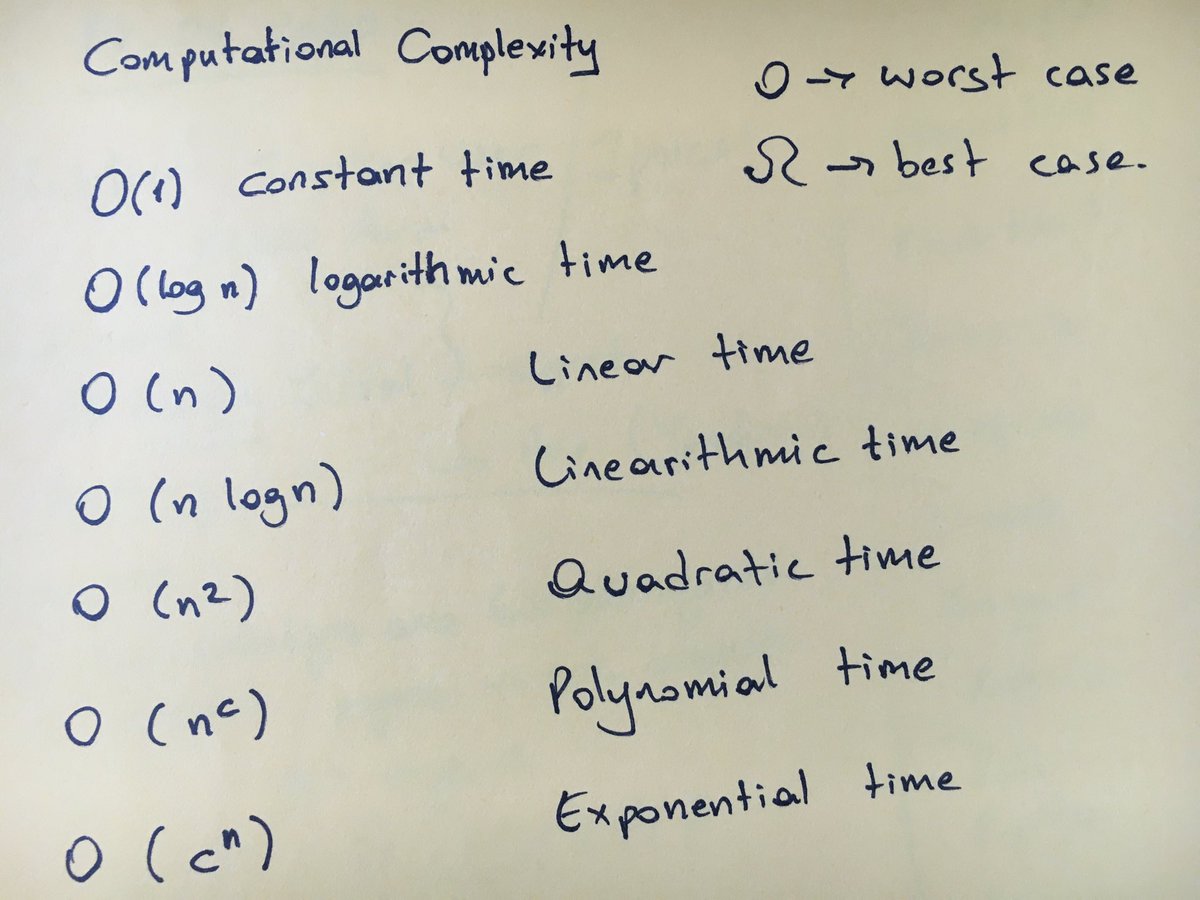 Computational Complexity
O → worst case
Ω → best case.
O(1) constant time
O(log n) logarithmic time
O (n) Linear time
O (n logn) Linearithmic time
O (n²) Quadratic time
O (nᶜ) Polynomial time
O (cⁿ) Exponential time